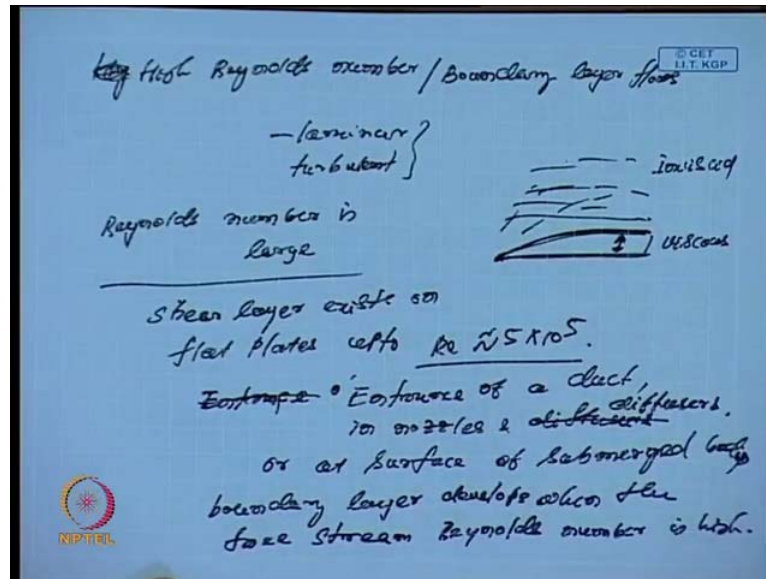 High Reynolds number / Boundary layer flows
© CET
I.I.T. KGP
- laminar
turbulent
inviscid
Reynolds number is
large
viscous
Shear layer exists on
flat plates upto Re ≈ 5 × 10⁵.
Entrance of a duct,
in nozzles & diffusers.
or at surface of submerged
boundary layer develops when the
free stream Reynolds number is high.
NPTEL